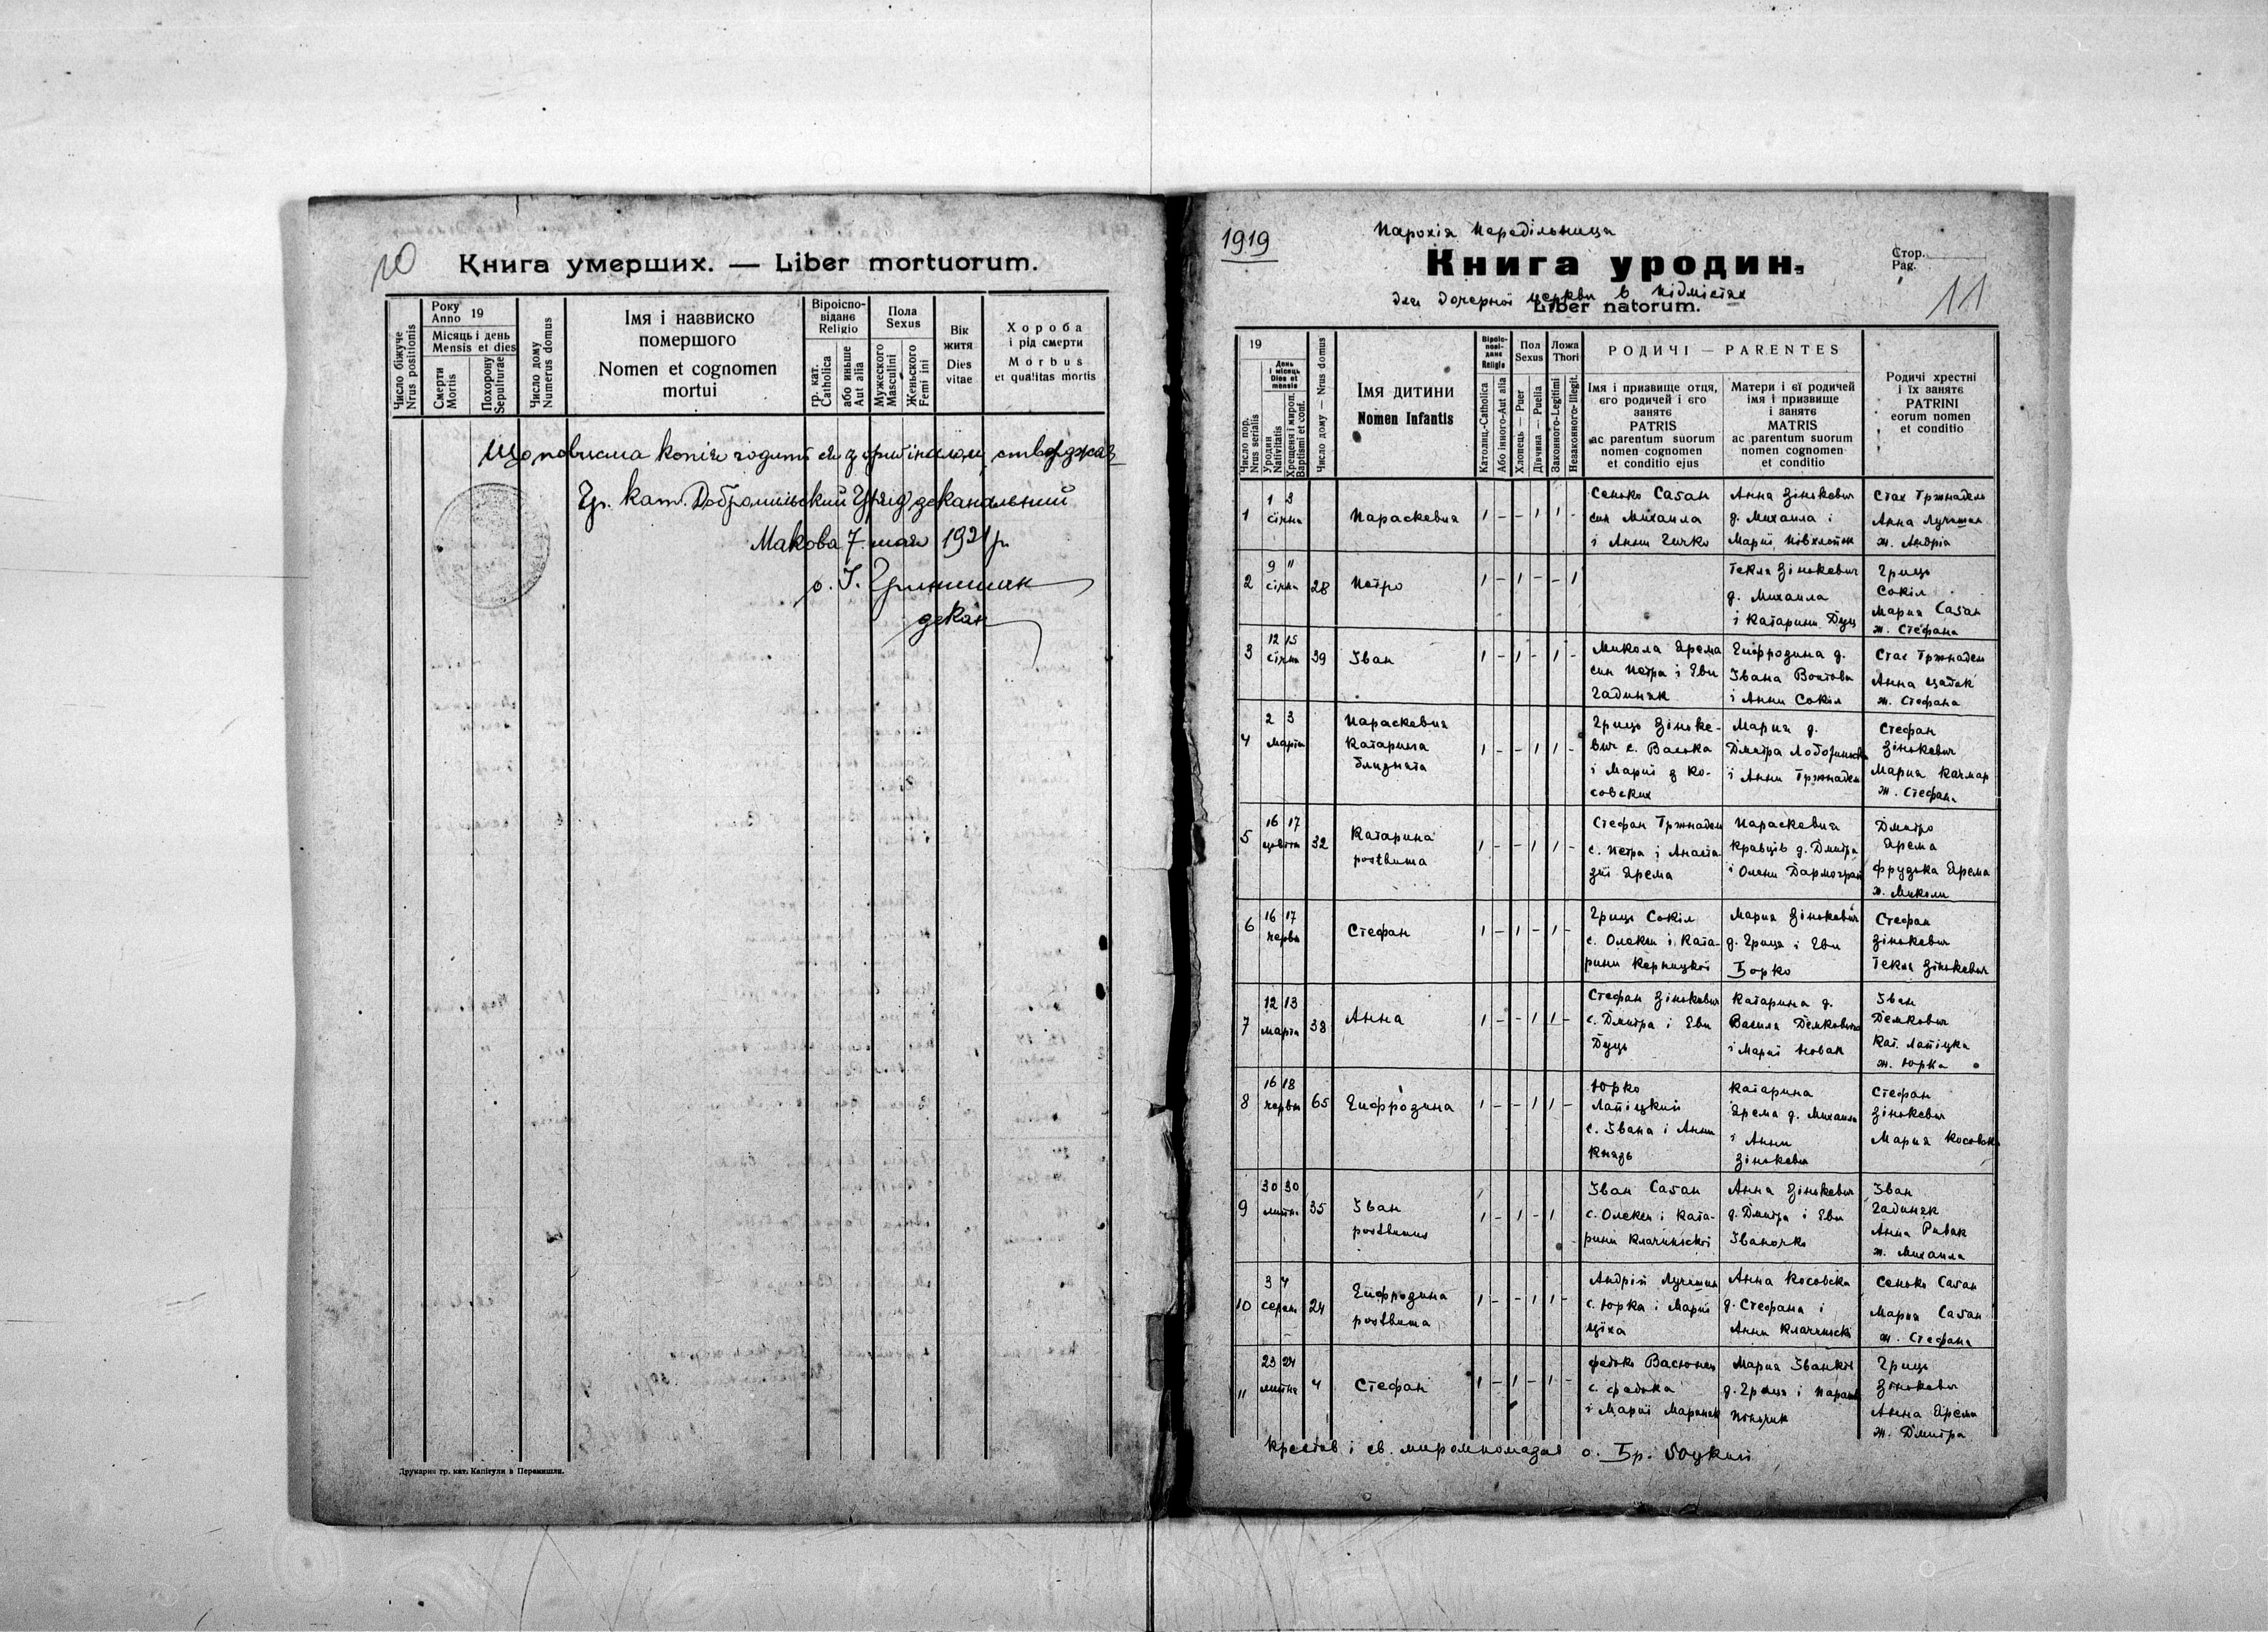 10
Книга умерших. — Liber mortuorum.
Число біжуче
Nrus positionis
Року
Anno 19
Місяць і день
Mensis et dies
Смерти
Mortis
Похорону
Sepulturae
Число дому
Numerus domus
Імя і назвиско
помершого
Nomen et cognomen
mortui
Віроіспо-
відане
Religio
гр. кат.
Catholica
або иньше
Aut alia
Пола
Sexus
Мужеского
Masculini
Женьского
Femi ini
Вік
житя
Dies
vitae
Хороба
і рід смерти
Morbus
et qualitas mortis
Що повисша копія годить ся з оригіналом, стверджає
Гр. кат. Добромильський Уряд деканальний
Макова 7. мая 1921 р.
о. І. Гринишак
декан
Друкарня гр. кат. Капітули в Перемишли.
1919
Парохія Передільница
Книга уродин.
для дочерної церкви в Підмістях
Liber natorum.
Стор.
Pag.
11
19
Число пор.
Nrus serialis
День
і місяць
Dies et
mensis
Уродин
Nativitatis
Хрещеня і миропом.
Baptismi et conf.
Число дому — Nrus domus
Імя дитини
Nomen Infantis
Віроіс-
пові-
дане
Religio
Католиц.-Catholica
Або інного-Aut alia
Пол
Sexus
Хлопець — Puer
Дівчина — Puella
Ложа
Thori
Законного-Legitimi
Незаконного-Illegit.
РОДИЧІ — PARENTES
Імя і призвище отця,
єго родичей і єго
занятє
PATRIS
ac parentum suorum
nomen cognomen
et conditio ejus
Матери і єї родичей
імя і призвище
і занятє
MATRIS
ac parentum suorum
nomen cognomen
et conditio
Родичі хрестні
і їх занятє
PATRINI
eorum nomen
et conditio
1 1 3 січня Параскевия 1 - - 1 1 -
Сенько Сабан
син Михаила
і Анни Гичко
Анна Зінькевич
д. Михаила і
Марії
Стах Тржнадель
Анна Лучишин
ж. Андрія
2 9 " січня 28 Петро 1 - 1 - - 1
Текля Зінькевич
д. Михаила
і Катарини Дуць
Гриць
Сокіл
Мария Сабан
ж. Стефана
3 12 15 січня 39 Іван 1 - 1 - 1 -
Микола Ярема
син Петра і Еви
Гадиняк
Евфрозина д.
Івана Войтови
і Анни Сокіл
Стах Тржнадель
Анна Цапак
ж. Стефана
4 2 3 марта Параскевия
Катарина
близнята
1 - - 1 1 -
Гриць Зіньке-
вич с. Васька
і Марії з Ко-
совских
Мария д.
Дмитра
і Анни Тржнадель
Стефан
Зінькевич
Мария Качмар
ж. Стефана
5 16 17 цвітня 32 Катарина
posthuma
1 - - 1 1 -
Стефан Тржнадель
с. Петра і Анаста-
зії Ярема
Параскевия
Кравців д. Дмитра
і Олени Дармограй
Дмитро
Ярема
Фрузька Ярема
ж. Миколи
6 16 17 червня Стефан 1 - 1 - 1 -
Гриць Сокіл
с. Олекси і Ката-
рини Керницкої
Мария Зінькевич
д. Гриця і Еви
Борко
Стефан
Зінькевич
Текля Зінькевич
7 12 13 марта 38 Анна 1 - - 1 1 -
Стефан Зінькевич
с. Дмитра і Еви
Дуць
Катарина д.
Василя Демковича
і Марії Новак
Іван
Демкович
Кат. Лапіцка
ж. Юрка
8 16 18 червня 65 Евфрозина 1 - - 1 1 -
Юрко
Лапіцкий
с. Івана і Анни
Князь
Катарина
Ярема д. Михаила
і Анни
Зінькевич
Стефан
Зінькевич
Мария Косовска
9 30 30 липня 35 Іван
posthumus
1 - 1 - 1
Іван Сабан
с. Олекси і Ката-
рини Клачиньскої
Анна Зінькевич
д. Дмитра і Еви
Іваночко
Іван
Гадиняк
Анна Рибак
ж. Михаила
10 3 4 серпн 24 Евфрозина
posthuma
1 - - 1 1 -
Андрій Лучишин
с. Юрка і Марії
Ціха
Анна Косовска
д. Стефана і
Анни Клачиньск
Сенько Сабан
Мария Сабан
ж. Стефана
11 23 24 липня 4 Стефан 1 - 1 - 1 -
Федько Васюнец
с. Федька
і Марії Маринек
Мария Іванків
д. Гриця і Параск
Гриць
Зінькевич
Анна Ярема
ж. Дмитра
Крестив і св. миром помазав о. Гр. Боцкий